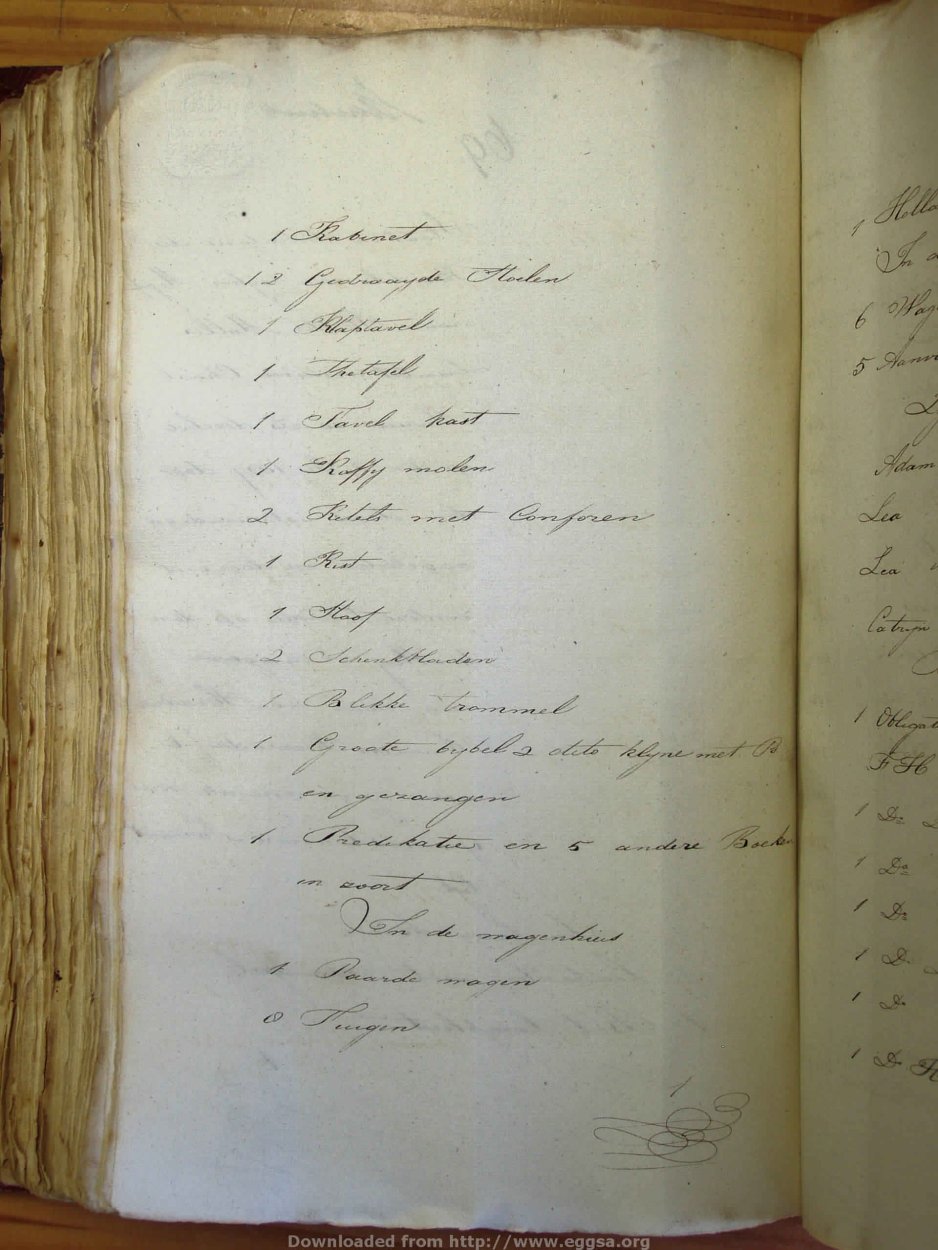 1 Kabinet
12 Gedraayde Stoelen
1 Klaptavel
1 Thetafel
1 Tavel kast
1 Kaffy molen
2 Ketels met Conforen
1 Kist
1 Stoof
2 Schenkbladen
1 Blikke trommel
1 Groote bybel 2 dito klyne met
en gezangen
1 Predikatie en 5 andere Boeken
in zoort
In de wagenhuis
1 Paarde wagen
8 Tuigen
1
1
In
6 Wag
5
Adam
Lea
Lea
Catryn
1 Obligat
F H
1 Do
1 Do
1 Do
1 Do
1 Do
1 Do
Downloaded from http://www.eggsa.org